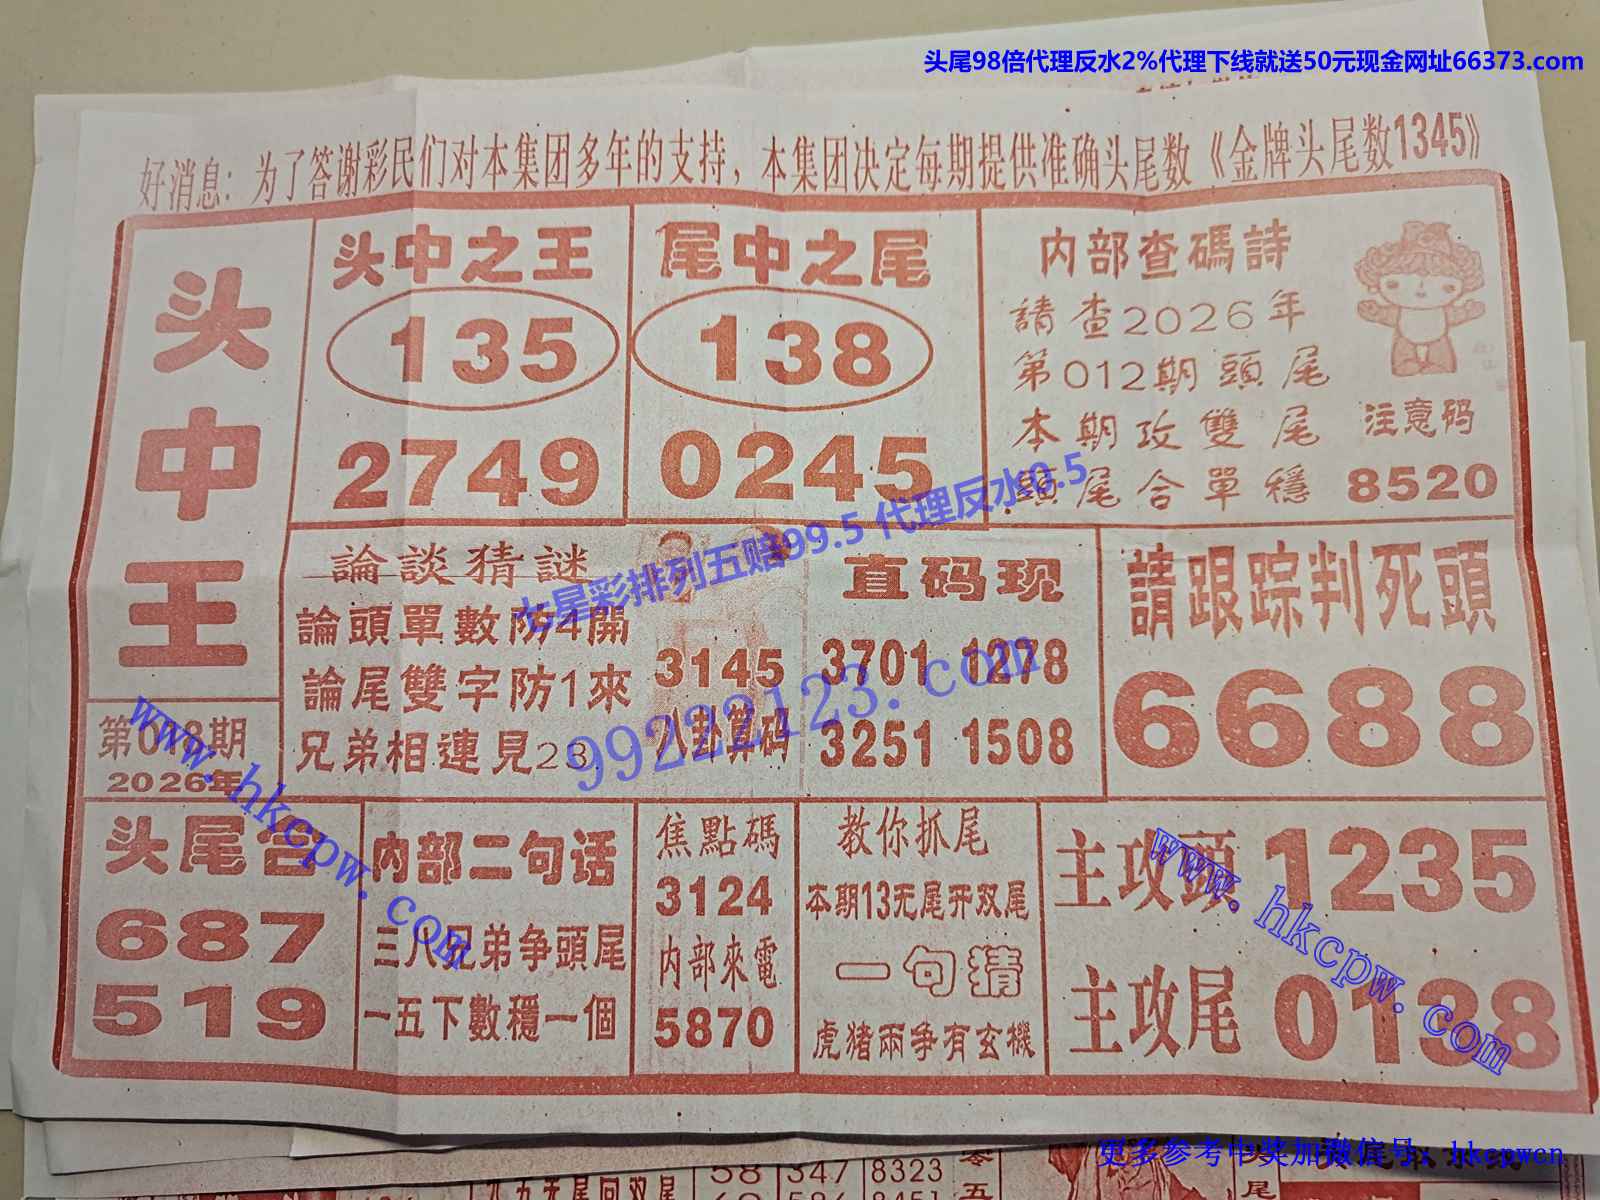 头尾98倍代理反水2%代理下线就送50元现金网址66373.com
好消息：为了答谢彩民们对本集团多年的支持，本集团决定每期提供准确头尾数《金牌头尾数1345》
头中王
第018期
2026年
头中之王
135
2749
尾中之尾
138
0245
内部查碼詩
請查2026年
第012期頭尾
本期攻雙尾
頭尾合單穩
注意码
8520
論談猜謎
論頭單數防4開
論尾雙字防1來
兄弟相連見23
3145
八卦算码
直码现
3701 1278
3251 1508
請跟踪判死頭
6688
七星彩排列五赔99.5 代理反水0.5
99222123.com
www.hkcpw.com
头尾合
687
519
内部二句话
三八兄弟争頭尾
一五下數穩一個
焦點碼
3124
内部來電
5870
教你抓尾
本期13无尾开双尾
一句猜
虎猪兩争有玄機
主攻頭 1235
主攻尾 0138
www.hkcpw.com
更多参考中奖加微信号：hkcpwcn
58 347 8323